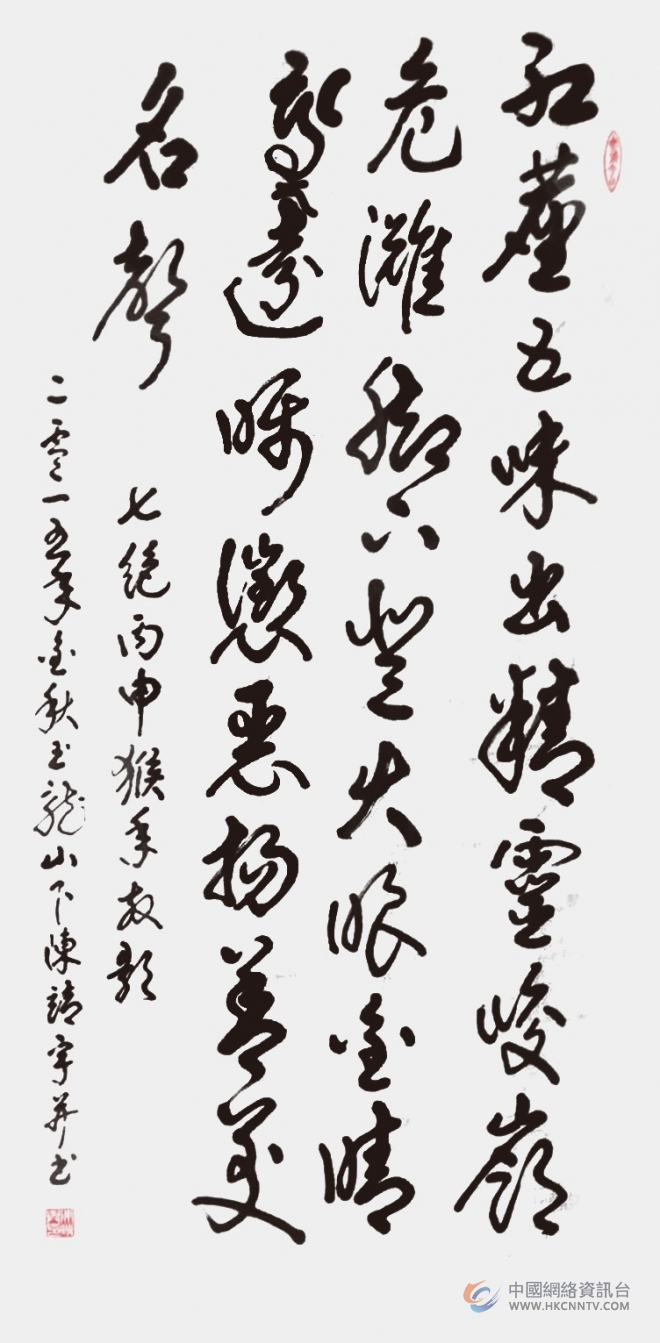 紅塵五味出精靈峻嶺
危灘腳下登火眼金睛
遠矚懲惡揚善美
名聲
七絕丙申猴年放歌
二零一五年金秋玉龍山下陳靖宇并书
中國網絡資訊台
WWW.HKCNNTV.COM